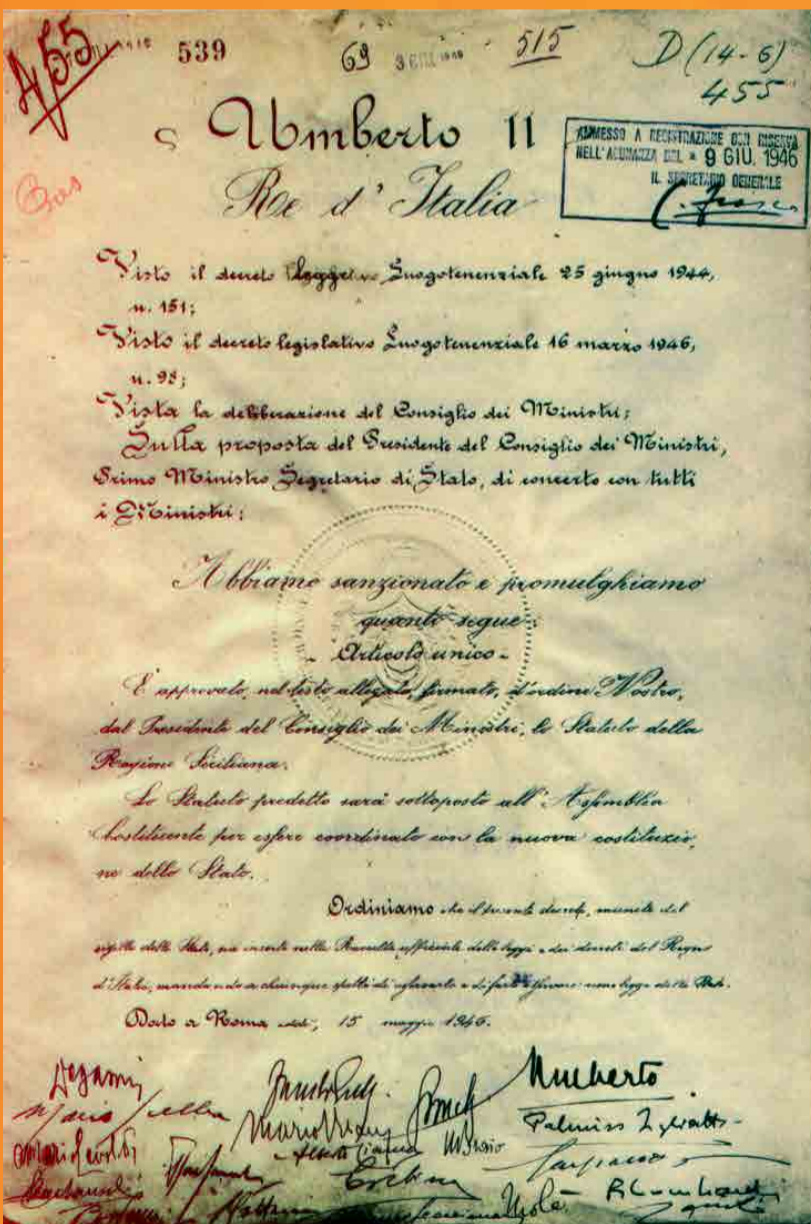 455
539
69
515
D (14-6)
455
Umberto II
Re d'Italia
AMMESSO A REGISTRAZIONE CON RISERVA
NELL'ADUNANZA DEL 9 GIU. 1946
IL SEGRETARIO GENERALE
Visto il decreto legge Luogotenenziale 25 giugno 1944,
n. 151;
Visto il decreto legislativo Luogotenenziale 16 marzo 1946,
n. 98;
Vista la deliberazione del Consiglio dei Ministri;
Sulla proposta del Presidente del Consiglio dei Ministri,
Primo Ministro Segretario di Stato, di concerto con tutti
i Ministri;
Abbiamo sanzionato e promulghiamo
quanto segue:
- Articolo unico -
È approvato, nel testo allegato, firmato, d'ordine Nostro,
dal Presidente del Consiglio dei Ministri, lo Statuto della
Regione Siciliana.
Lo Statuto predetto sarà sottoposto all'Assemblea
Costituente per essere coordinato con la nuova costituzio,
ne dello Stato.
Ordiniamo che il presente decreto, munito del
sigillo dello Stato, sia inserto nella Raccolta ufficiale delle leggi e dei decreti del Regno
d'Italia, mandando a chiunque spetti di osservarlo e di farlo osservare come legge dello Stato.
Dato a Roma addì, 15 maggio 1946.
Umberto
Palmiro Togliatti